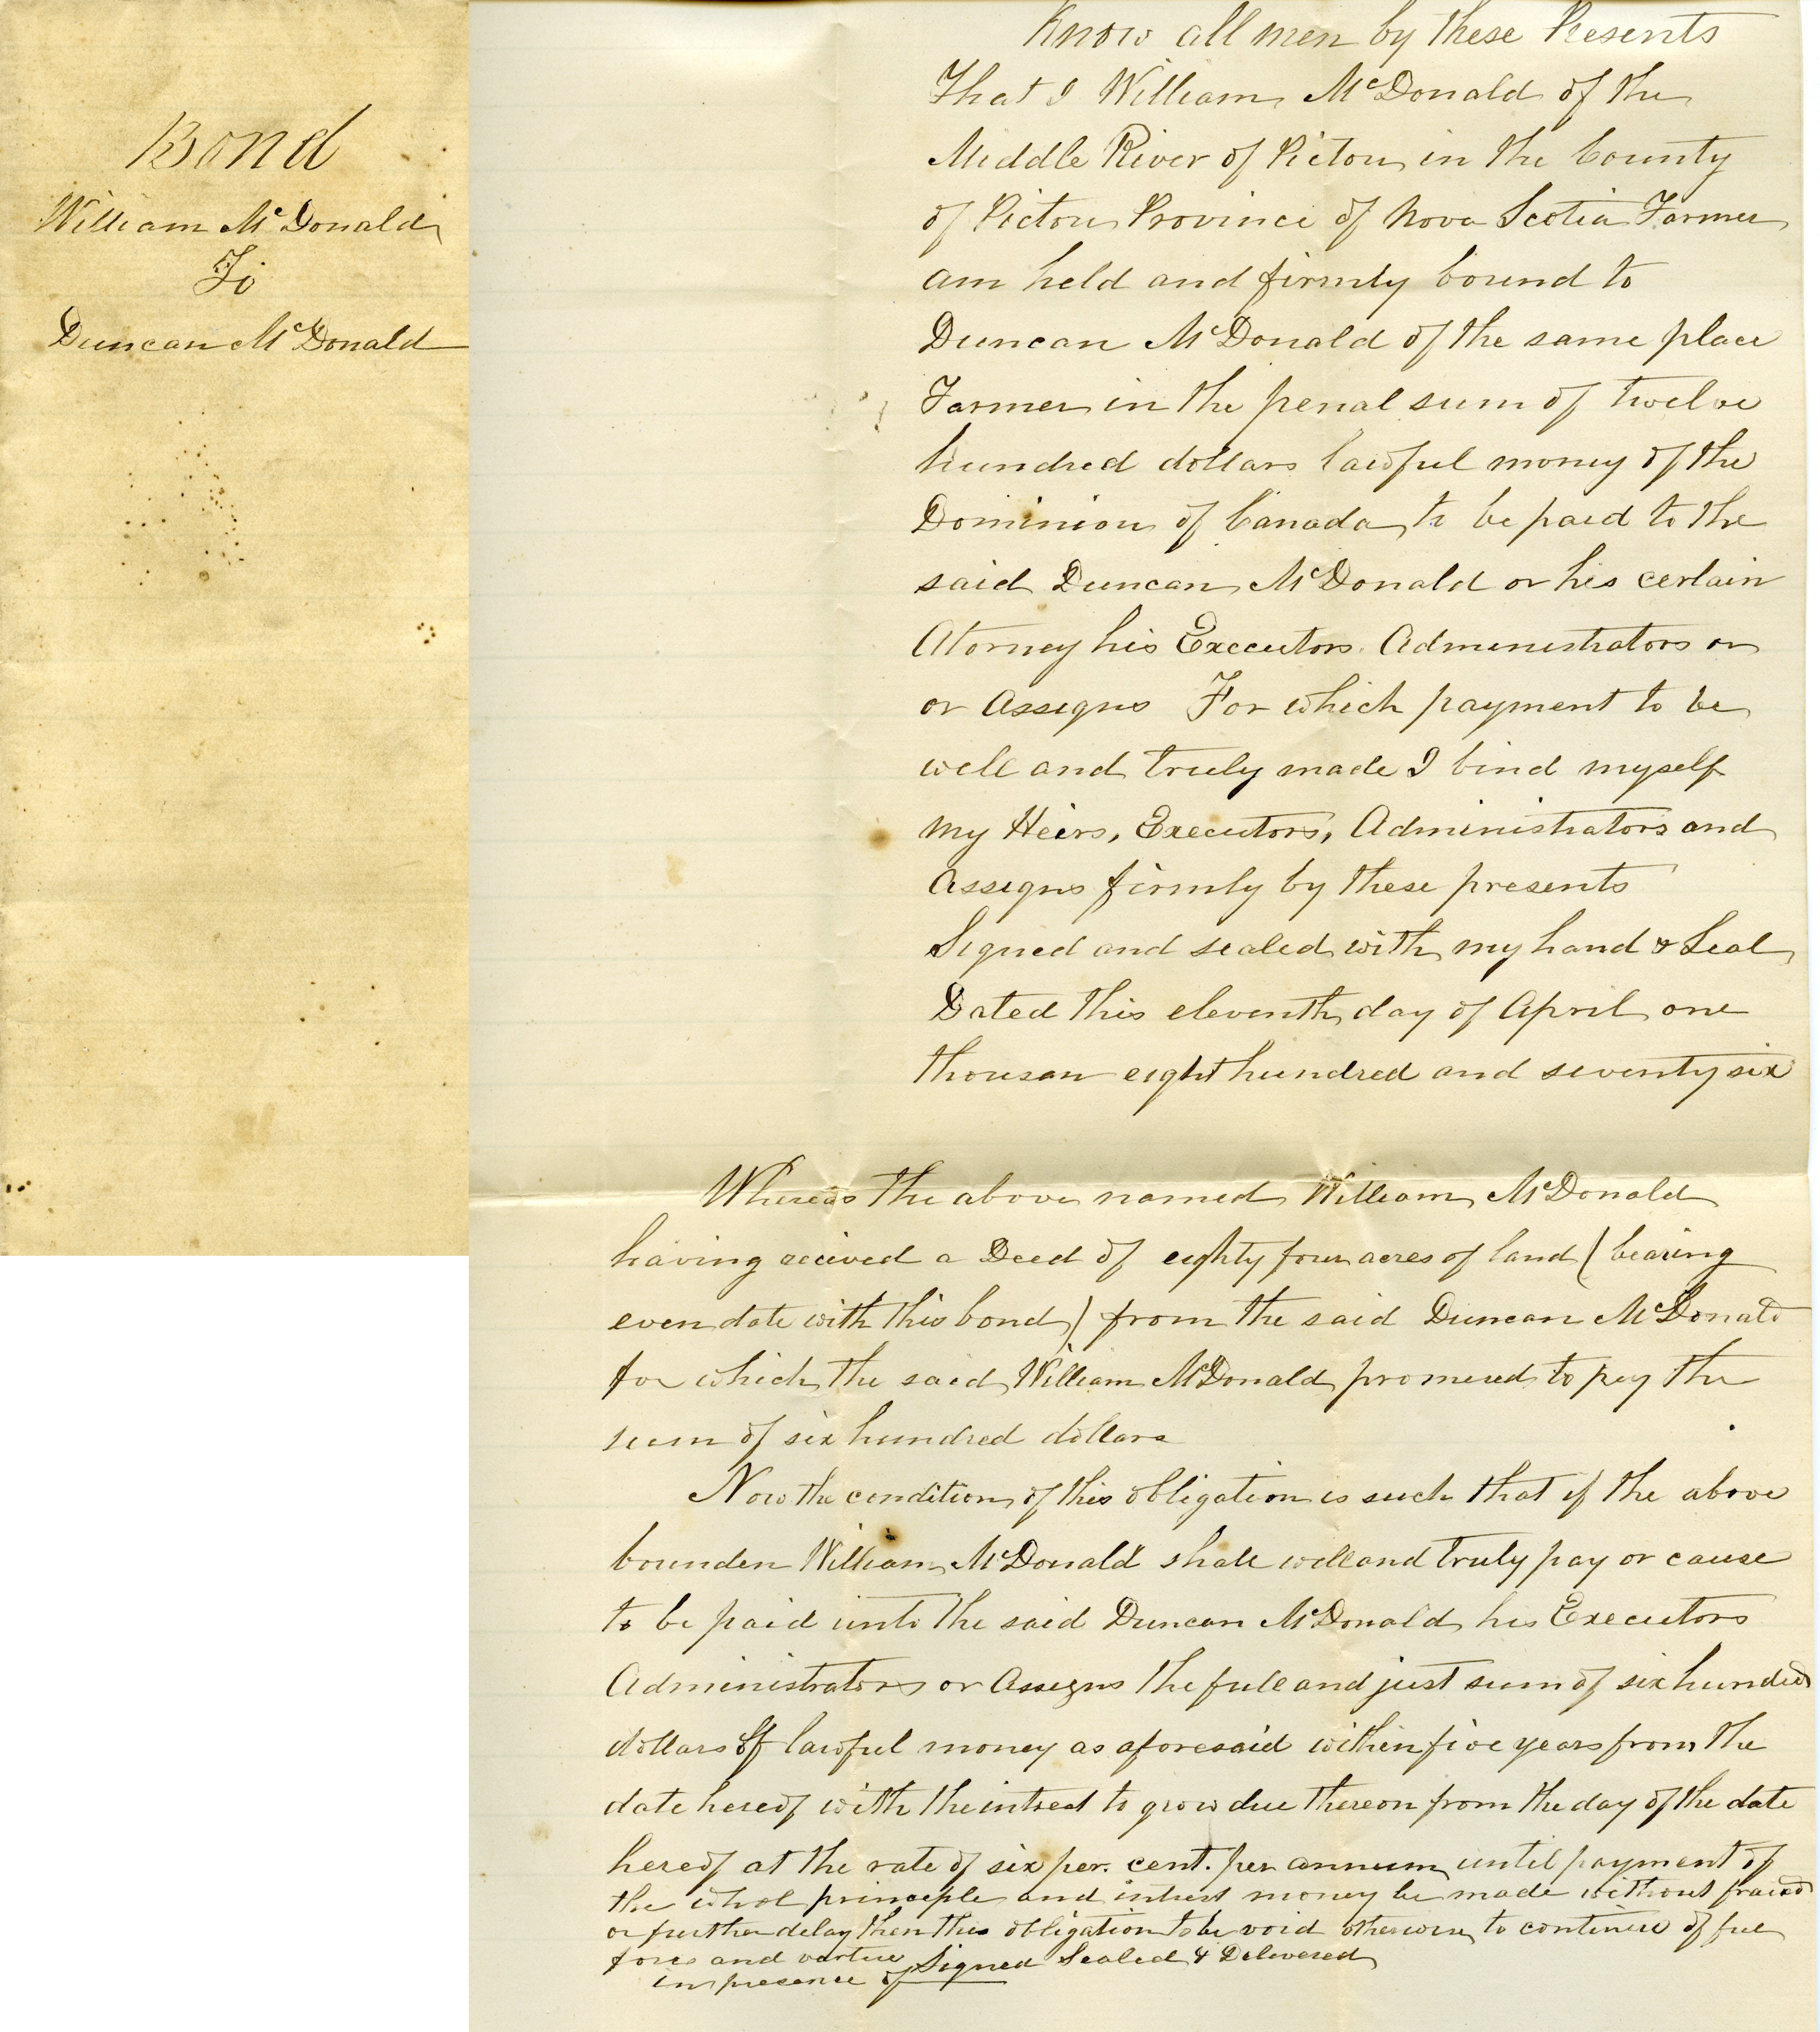 Bond
William McDonald
To
Duncan McDonald
Know all men by these Presents
That I William McDonald of the
Middle River of Pictou in the County
of Pictou Province of Nova Scotia Farmer
am held and firmly bound to
Duncan McDonald of the same place
Farmer in the penal sum of twelve
hundred dollars lawful money of the
Dominion of Canada to be paid to the
said Duncan McDonald or his certain
Atorney his Executors. Administrators or
or Assigns For which payment to be
well and truly made I bind myself
my Heirs, Executors, Administrators and
Assigns firmly by these presents
Signed and sealed with my hand & Seal
Dated this eleventh day of April one
thousan eight hundred and seventy six
Whereas the above named William McDonald
having recived a Deed of eighty four acres of land (bearing
even date with this bond) from the said Duncan McDonald
for which the said William McDonald promised to pay the
sum of six hundred dollars
Now the condition of this obligation is such that if the above
bounden William McDonald shall well and truly pay or cause
to be paid unto the said Duncan McDonald his Executors
Administrators or Assigns the full and just sum of six hundred
dollars of lawful money as aforesaid within five years from the
date hereof with the intrest to grow due thereon from the day of the date
hereof at the rate of six per. cent. per annum until payment of
the whol principle and intrest money be made without fraud
or further delay then this obligation to be void otherwise to continue of full
force and vertue Signed Sealed & Delivered
in presence of